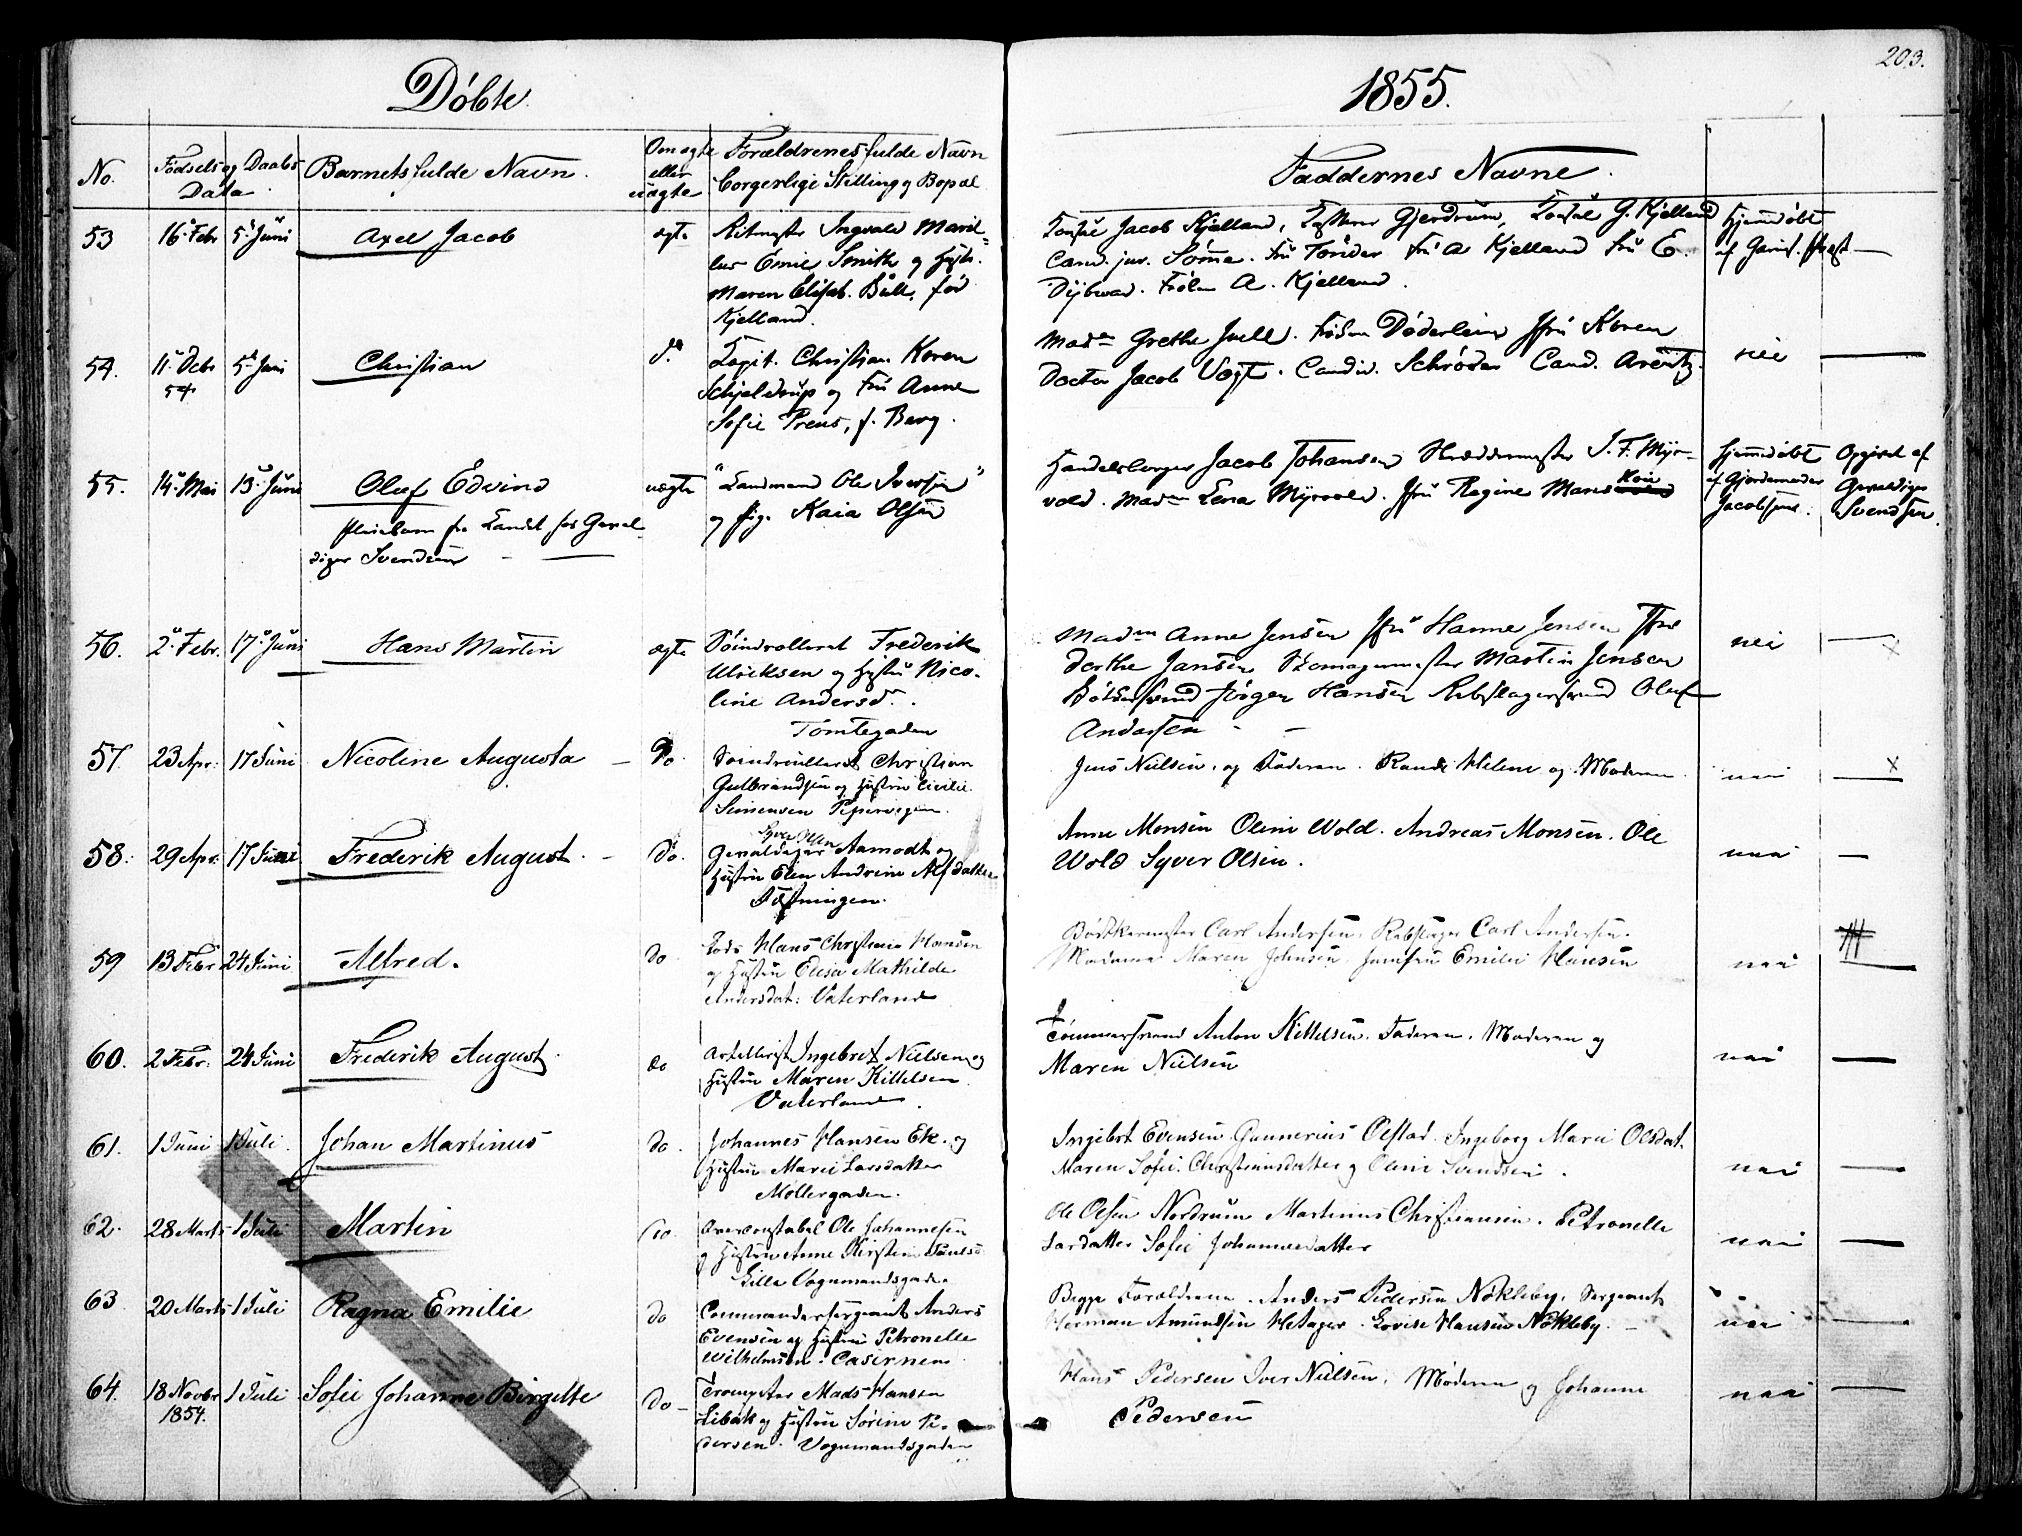 203.
Döbte
1855.
No.
Födsels og Daabs
Data
Barnets fulde Navn.
Om ægte
eller
uægte
Forældrenes fulde Navn
borgerlige Stilling og Bopæl
Faddernes Navne.
53
16. Febr
5. Juni
Axel Jacob
ægte
Ritmester Ingvald
Emil Smith og Hustr.
Maren Elisab. Bull, fød
Kjelland.
Jacob Kjelland, Gjerdrum, G. Kjelland
Cand. jur. Sömme. Fru Tönder Fru A Kjelland Fru E.
Dybwad. Frökn A. Kjelland.
Hjemmedöbt
af Garnis. Præst
54.
11. Debr
54
5. Juni
Christian
do
Capit. Christian Koren
Schjeldrup og Fru Anne
Sofie Preus, f. Berg.
Madm Grethe Juell. Fröken Döderlein Jfru Koren
Doctor Jacob Vogt. Candid. Schröder Cand. Arentz.
nei
55.
14. Mai
13. Juni
Oluf Edvind
Pleiebarn fra Landet hos Geval-
diger Svendsen
uægte
"Landmand Ole Iversen"
og Pige Kaia Olsen
Handelsborger Jacob Johansen Skræddermester J. F. Myr-
vold. Madm Lena Myrvold. Jfru Regine
Hjemmedöbt
af Gjordemoder
Jacobsen.
Opgivet af
Gevaldiger
Svendsen.
56.
2. Febr.
17. Juni
Hans Martin
ægte
Söindrolleret Frederik
Ulriksen og Hustru Nico-
line Andersd.
Tomtegaden
Madm Anne Jensen Jfru Hanne Jensen Jfru
Dorthe Jansen Skomagermester Martin Jensen
Bödkersvend Jörgen Hansen Rebslagersvend Oluf
Andersen
nei
57.
23 Apr.
17 Juni
Nicoline Augusta
Do.
Söindrulleret Christian
Gulbrandsen og Hustru Cicilie
Simensen Pipervigen.
Jens Nielsen, og Faderen. Randi Helene og Moderen.
nei
58.
29 Apr.
17 Juni
Frederik August.
Do.
Syver Olsen
Gevaldiger Aamodt og
Hustru Elen Andrine Alfdatter
Fæstningen.
Anne Monsen Oline Wold. Andreas Monsen. Ole
Wold Syver Olsen.
nei
59
13 Febr
24 Juni
Alfred.
do
Hans Christian Hansen
og Hustru Elisa Mathilde
Andersdat: Vaterland
Bödkermester Carl Andersen. Rebslager Carl Andersen.
Madame Maren Johnsen. Jomfru Emilie Hansen
nei
60.
2 Febr:
24 Juni
Frederik August.
do
Artillerist Ingebret Nielsen og
Hustru Maren Kittelsen
Vaterland.
Tömmersvend Anton Kittelsen. Faderen. Moderen og
Maren Nielsen
nei
61.
1 Juni
1 Juli.
Johan Martinus
do.
Johannes Hansen Ek. og
Hustru Marie Larsdatter
Möllergaden.
Ingebrt Evensen Gunnerius Oestad. Ingeborg Marie Olsdat.
Maren Sofie Christiansdatter og Oline Svendsen.
nei
62.
28 Marts
1 Juli
Martin
do.
Overconstabel Ole Johannesen
og Hustru Anne Kirstine Paulsd.
Lille Vognmandsgade.
Ole Olsen Nordrum Martinus Christiansen. Petronelle
Larsdatter Sofie Johannesdatter
nei
63
20 Marts
1 Juli
Ragna Emilie
do
Commandersergeant Anders
Evensen og Hustru Petronelle
Wilhelmsen. Casernen.
Begge Forældrene. Anders Pedersen Nökleby. Sergeant
Herman Amundsen Hetager. Lovise Hansen Nökleby.
nei
64.
18 Novbr
1854.
1 Juli
Sofie Johanne Birgitte
do
Trompeter Mads Hansen
Libak og Hustru Sörine Pe-
dersen. Vognmandsgaden
Hans Pedersen Iver Nielsen. Moderen og Johanne
Pedersen
nei